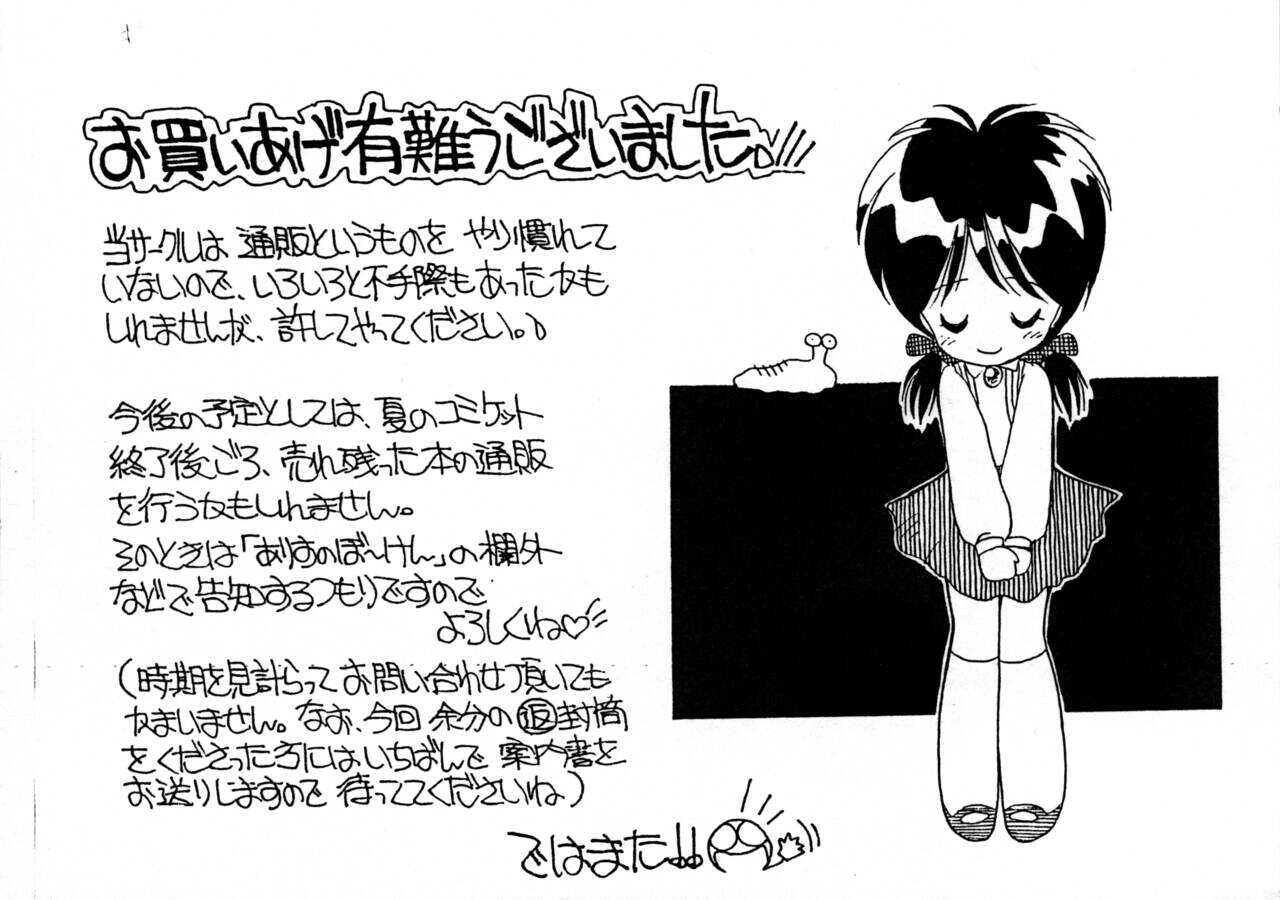 お買いあげ有難うございました。
当サークルは 通販というものを やり慣れて
いないので、いろいろと不手際もあったかも
しれませんが、許してやってください。
今後の予定としては、夏のコミケット
終了後ごろ、売れ残った本の通販
を行うかもしれません。
そのときは「ありすのぼ〜けん」の欄外
などで告知するつもりですので
よろしくね♡
(時期を見計らって お問い合わせ頂いても
かまいません。なお、今回 余分の 返 封筒
をくださった方にはいちばんで 案内書を
お送りしますので 待っててくださいね)
ではまた!!